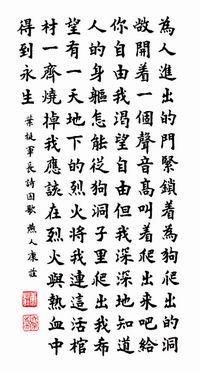 為人進出的門緊鎖着為狗爬出的洞
敞開着一個聲音高叫着爬出來吧給
你自由我渴望自由但我深深地知道
人的身軀怎能從狗洞子里爬出我希
望有一天地下的烈火將我連這活棺
材一齊燒掉我應該在烈火與熱血中
得到永生
葉挺軍長詩囚歌 燕人康莊